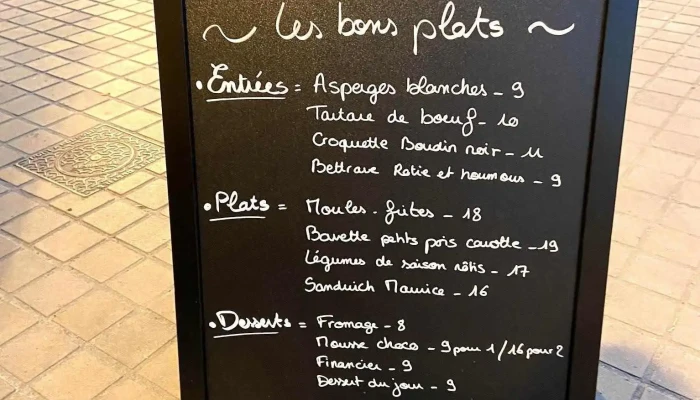 ~ les bons plats ~
• Entrées = Asperges blanches - 9
Tartare de boeuf - 10
Croquette Boudin noir - 11
Bettrave Rotie et houmous - 9
• Plats = Moules - frites - 18
Bavette petits pois carotte - 19
Légumes de saison rôtis - 17
Sandwich Maurice - 16
• Desserts = Fromage - 8
Mousse choco - 9 pour 1 / 16 pour 2
Financier - 9
Dessert du jour - 9